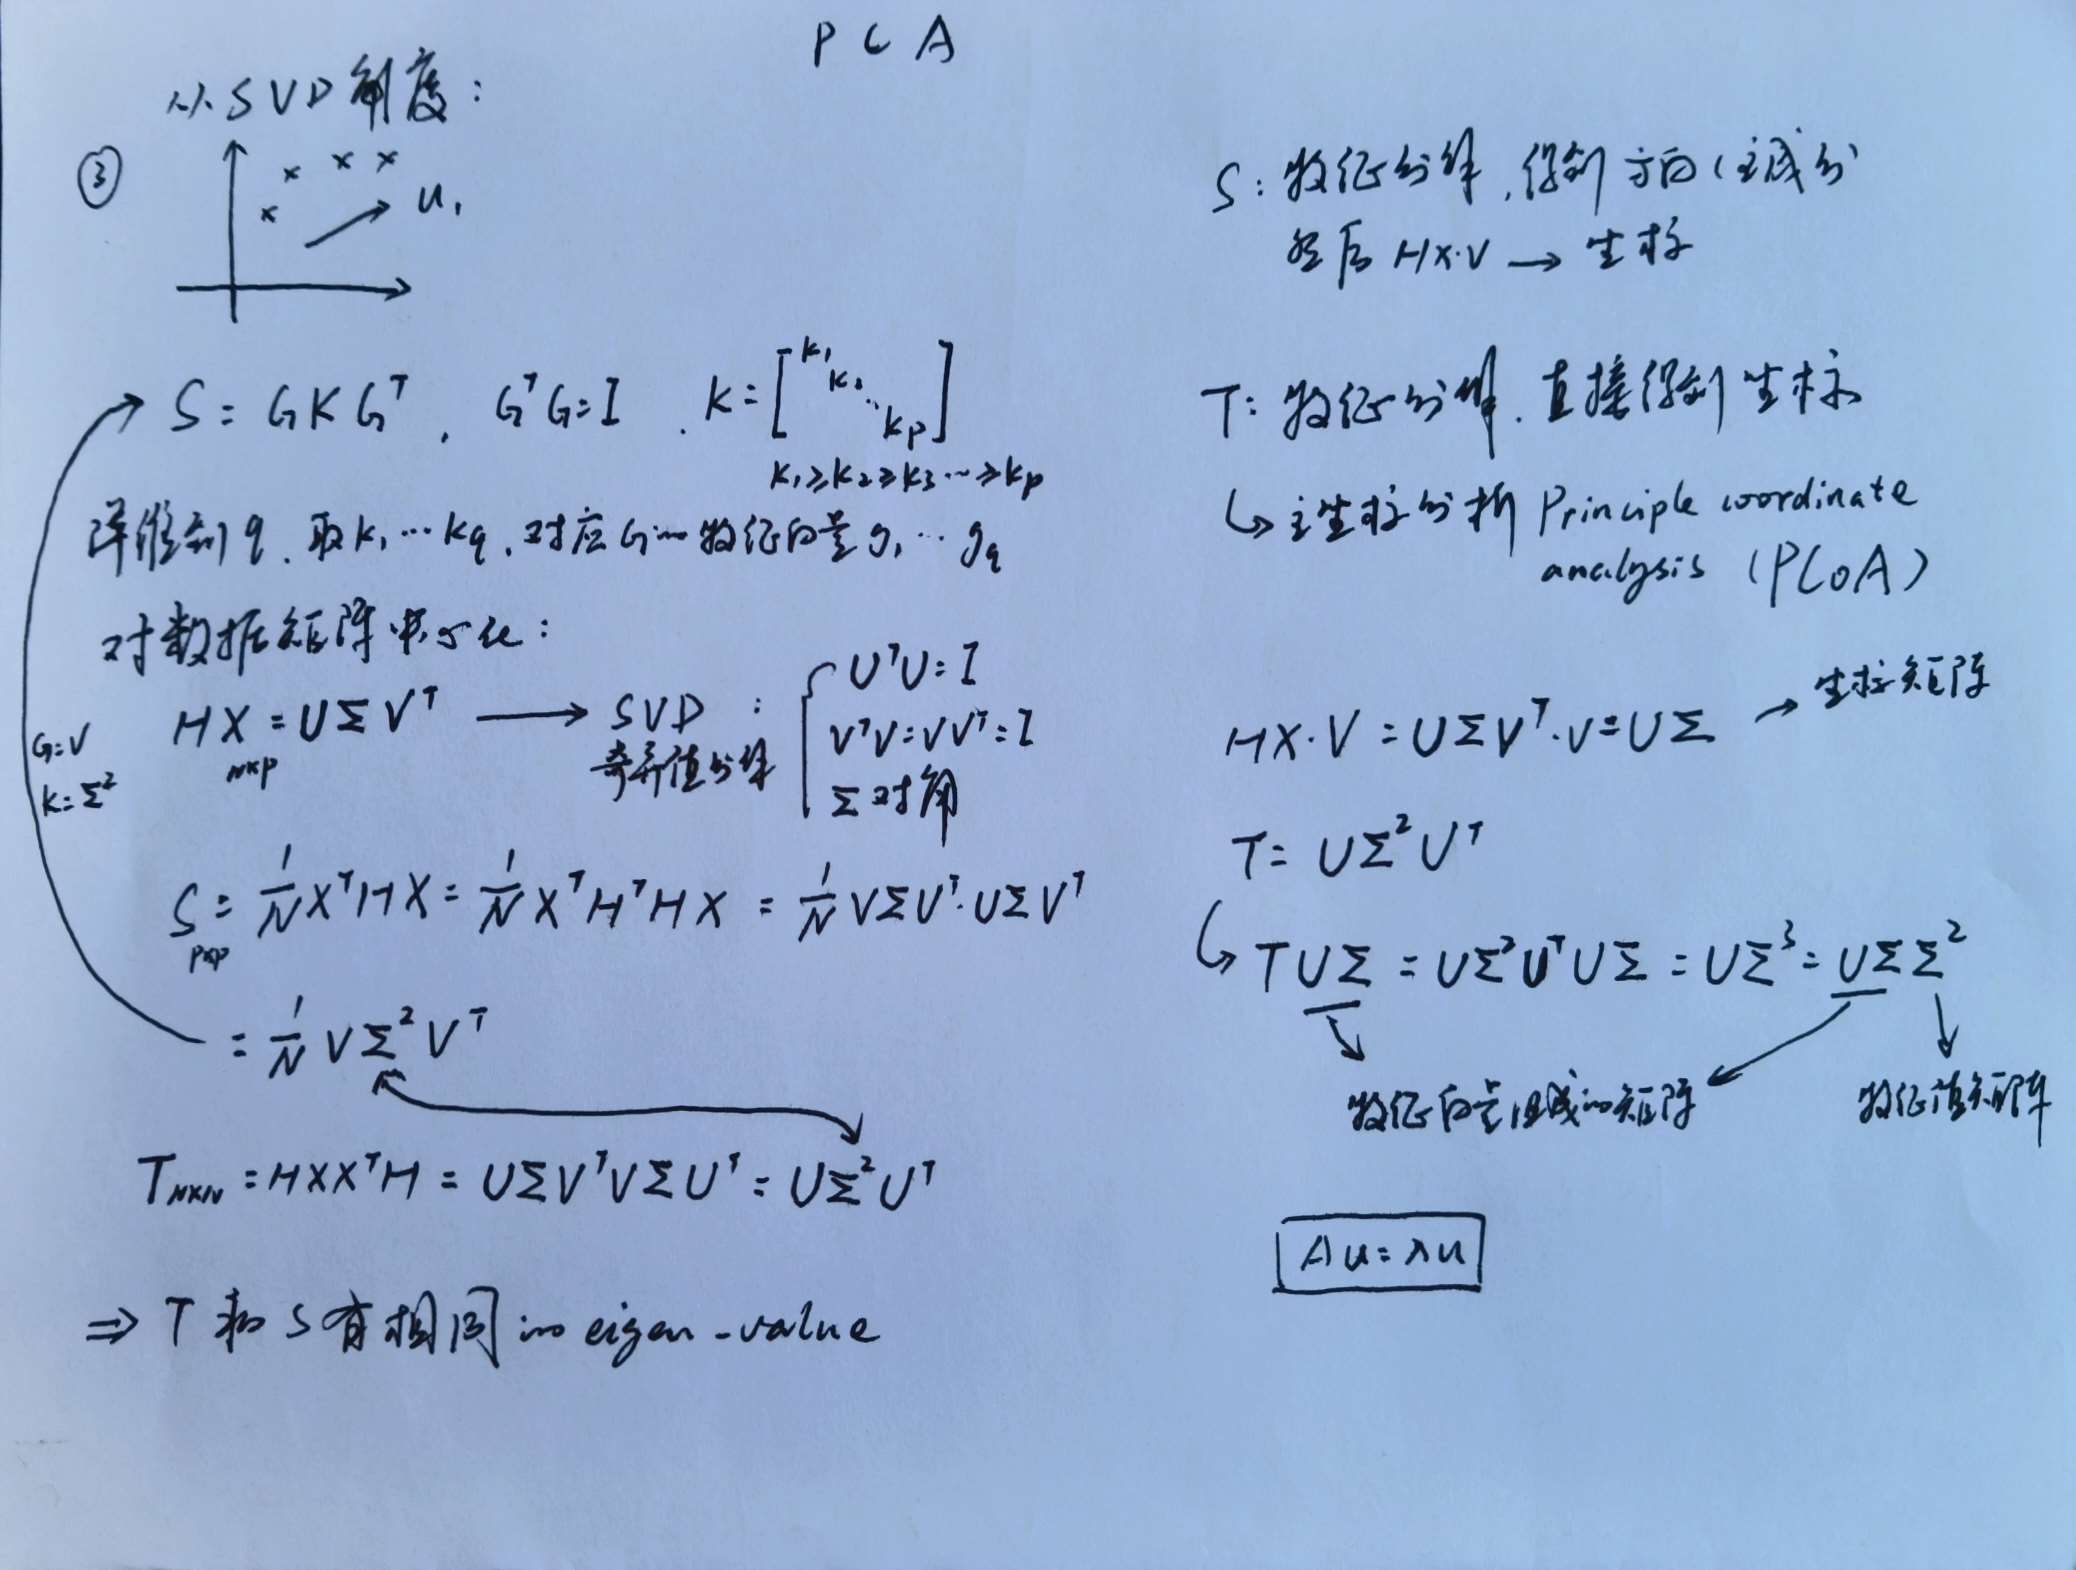 PCA
从SVD角度:
③
u₁
S = GKGᵀ, GᵀG=I. K=[k₁ k₂ ⋱ kp]
k₁≥k₂≥k₃…≥kp
降维到q, 取k₁…kq, 对应G的特征向量g₁…gq
对数据矩阵中心化:
G=V
K=Σ²
HX = UΣVᵀ → SVD :
N×p
奇异值分解
UᵀU=I
VᵀV=VVᵀ=I
Σ对角
S = 1/N XᵀHX = 1/N XᵀHᵀHX = 1/N VΣUᵀ·UΣVᵀ
p×p
= 1/N VΣ²Vᵀ
T N×N = HXXᵀH = UΣVᵀVΣUᵀ = UΣ²Uᵀ
⇒ T和S有相同的eigen-value
S: 特征分解, 得到方向(主成分
然后HX·V → 坐标
T: 特征分解, 直接得到坐标
↳ 主坐标分析 Principle coordinate
analysis (PCoA)
HX·V = UΣVᵀ·V=UΣ → 坐标矩阵
T = UΣ²Uᵀ
↳ TUΣ = UΣ²UᵀUΣ = UΣ³ = UΣΣ²
特征向量组成的矩阵
特征值矩阵
Au=λu